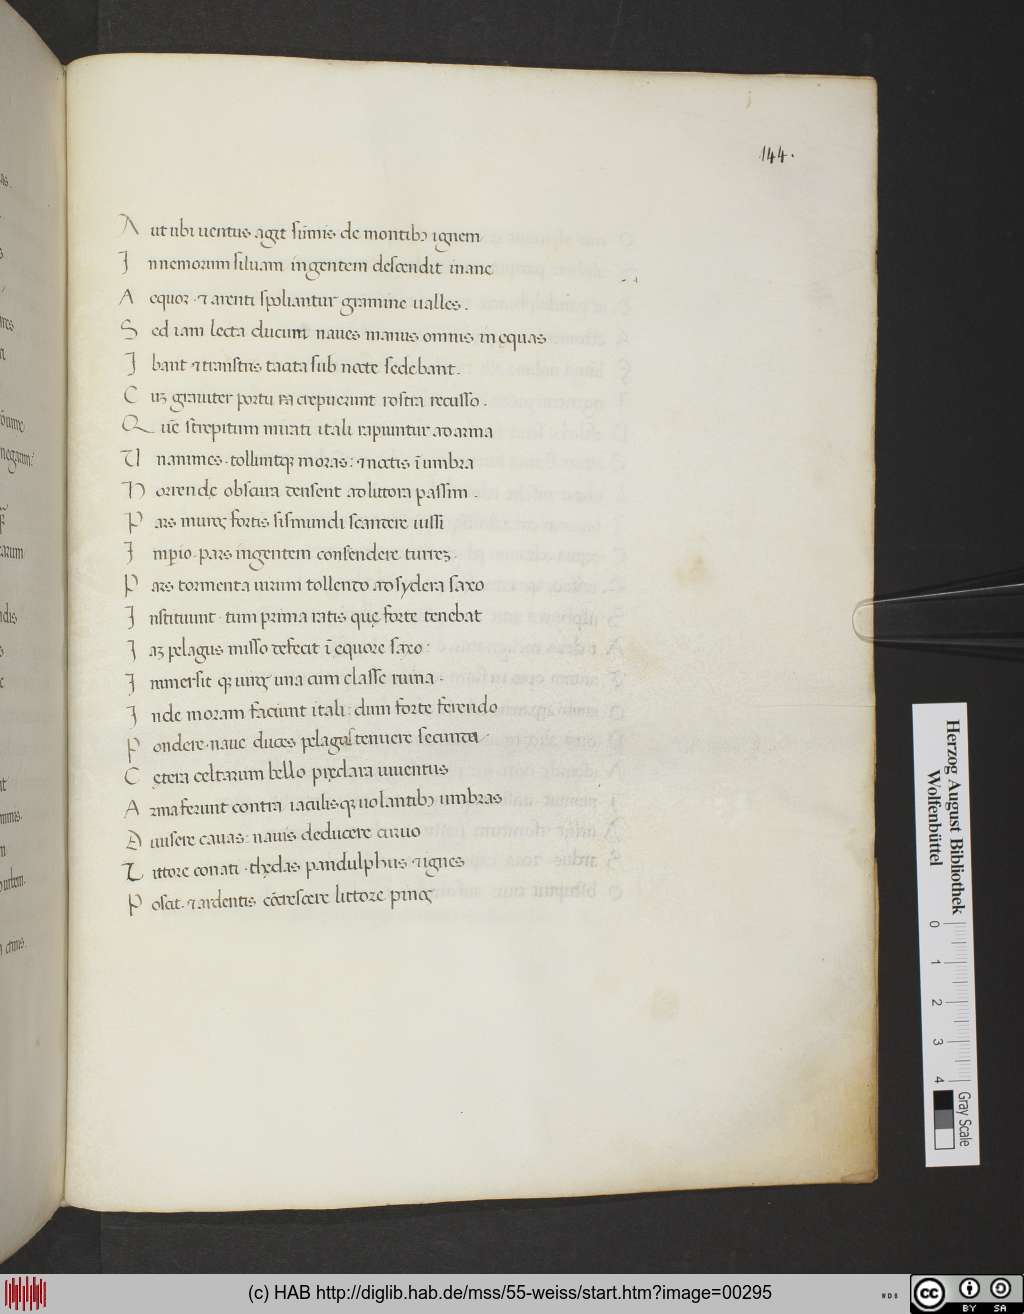 144.
Aut ubi uentus agit sūmis de montibꝫ ignem
Innemorum siluam ingentem descendit inane
Aequor. ⁊ arenti spoliantur gramine ualles.
Sed iam lecta ducum naues manus omnis in equas
Ibant ⁊ transtris tacita sub nocte sedebant.
Cuꝫ grauiter portu crepuerunt rostra recusso.
Que strepitum mirati itali rapiuntur ad arma
Unanimes. tolluntqꝫ moras: ⁊ noctis ī umbra
Horrendę obscura densent ad littora passim.
Pars muros fortis sismundi scandere iussi
Imperio. pars ingentem consendere turreꝫ.
Pars tormenta uirum tollendo ad sydera saxo
Instituunt. tum prima ratis quę forte tenebat
Iaꝫ pelagus misso defecit ī equore saxo:
Immersit qꝫ uiros una cum classe ruina.
Inde moram faciunt itali: dum forte ferendo
Pondere. naue duces pelagus tenuere secunda.
Cętera celtarum bello pręclara iuuentus
Arma ferunt contra iaculisqꝫ uolantibꝫ umbras
Diuisere cauas: nauis deducere curuo
Littore conati. thędas pandulphus ⁊ ignes
Poscit. ⁊ ardentis cōcrescere littore pinos
Herzog August Bibliothek
Wolfenbüttel
0 1 2 3 4
Gray Scale
(c) HAB http://diglib.hab.de/mss/55-weiss/start.htm?image=00295
cc BY SA